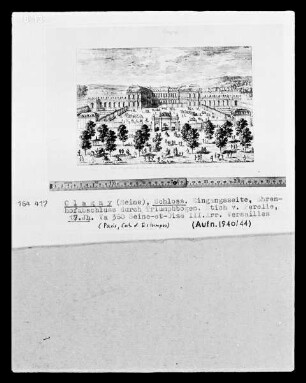 164 417 C l a g n y (Seine), Schloss, Eingangsseite, Ehren-
hofabschluss durch Triumphbogen. Stich v. Perelle,
17.Jh. Va 360 Seine-et-Oise III.Arr. Versailles
(Paris, Cab. d. Estampes) (Aufn. 1940/44)